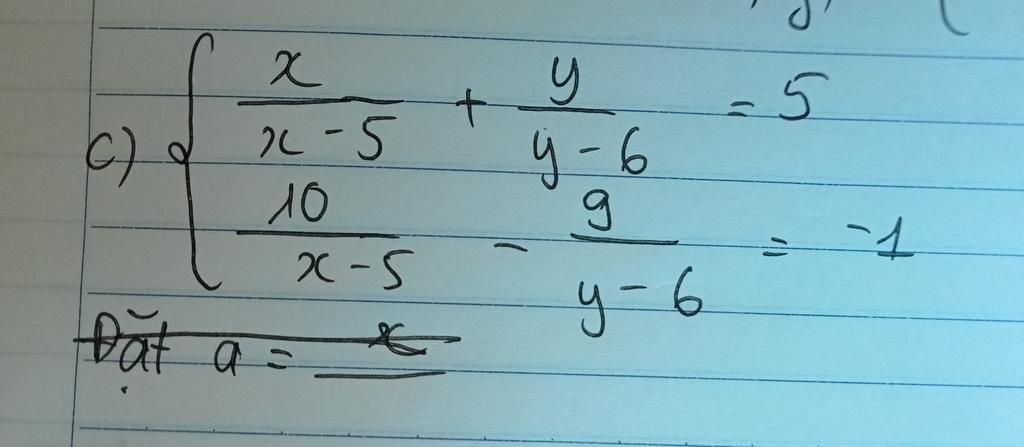 c) { x/(x - 5) + y/(y - 6) = 5
10/(x - 5) - 9/(y - 6) = -1
Đặt a =